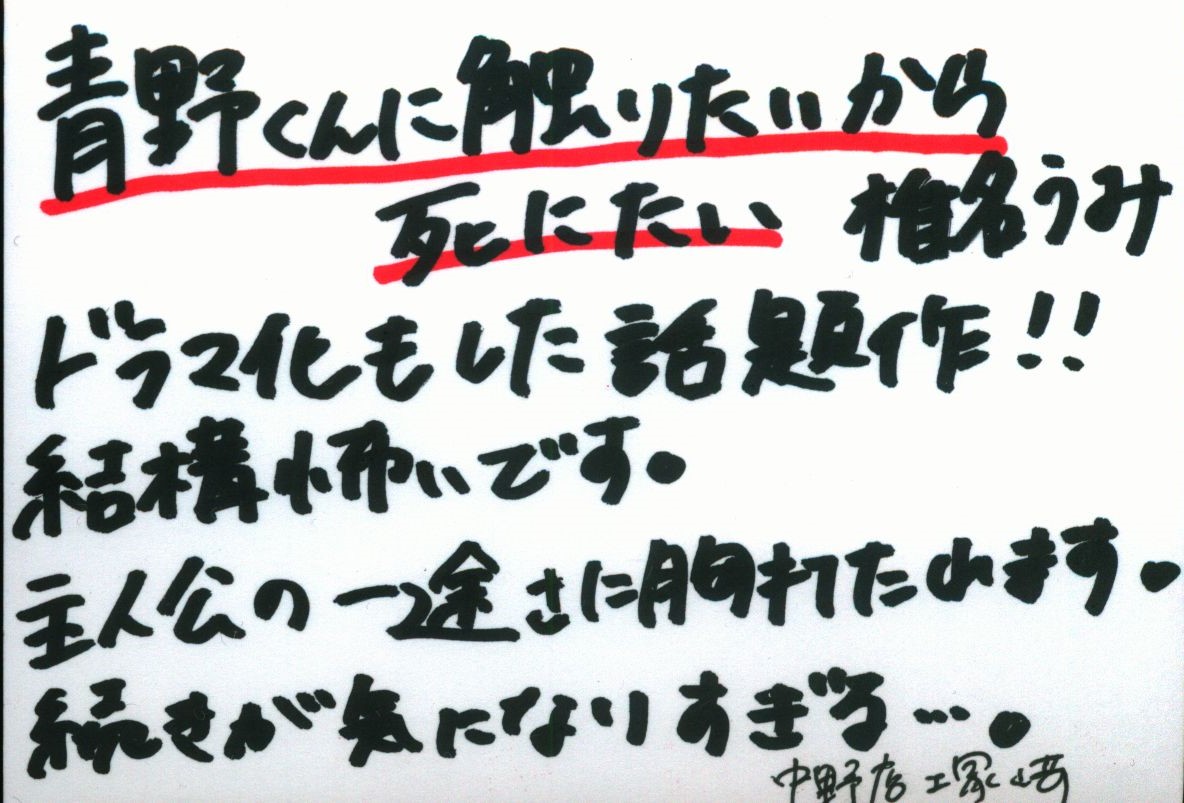 青野くんに触りたいから
死にたい 椎名うみ
ドラマ化もした話題作!!
結構怖いです。
主人公の一途さに胸打たれます。
続きが気になりすぎる…。
中野店 塚崎